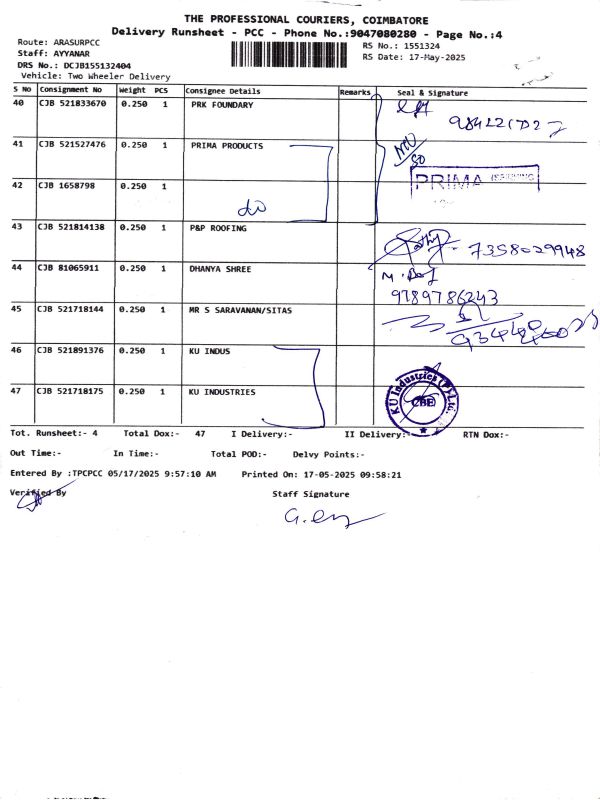 THE PROFESSIONAL COURIERS, COIMBATORE
Delivery Runsheet - PCC - Phone No.:9047080280 - Page No.:4
Route: ARASURPCC
Staff: AYYANAR
DRS No.: DCJB155132404
Vehicle: Two Wheeler Delivery
RS No.: 1551324
RS Date: 17-May-2025
S No Consignment No Weight PCS Consignee Details Remarks Seal & Signature
40 CJB 521833670 0.250 1 PRK FOUNDARY
41 CJB 521527476 0.250 1 PRIMA PRODUCTS
PRIMA
42 CJB 1658798 0.250 1
do
43 CJB 521814138 0.250 1 P&P ROOFING
7358029948
44 CJB 81065911 0.250 1 DHANYA SHREE
9789786243
45 CJB 521718144 0.250 1 MR S SARAVANAN/SITAS
46 CJB 521891376 0.250 1 KU INDUS
47 CJB 521718175 0.250 1 KU INDUSTRIES
KU Industries (P) Ltd.
CBE
Tot. Runsheet:- 4 Total Dox:- 47 I Delivery:- II Delivery:- RTN Dox:-
Out Time:- In Time:- Total POD:- Delvy Points:-
Entered By :TPCPCC 05/17/2025 9:57:10 AM Printed On: 17-05-2025 09:58:21
Verified By Staff Signature